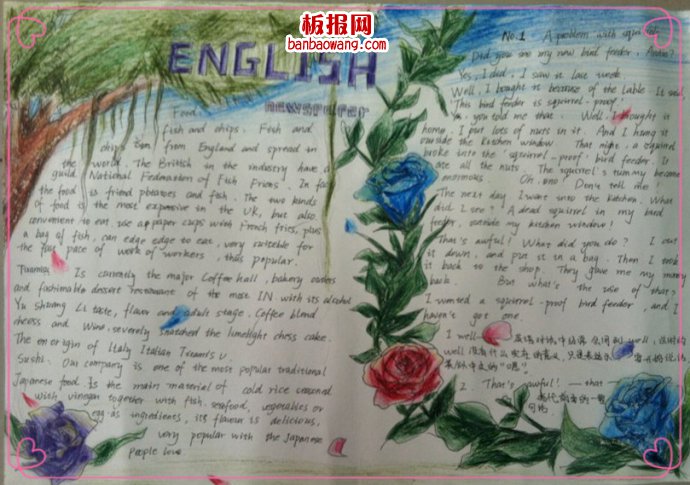 板报网
banbaowang.com
ENGLISH
newspaper
Food.
fish and chips. Fish and
chips from England and spread in
the world. The British in the industry have a
guild National Federation of Fish Friers. In fact
the food is friend potatoes and fish. The two kinds
of food is the most expensive in the UK, but also
convenient to eat, use a paper cups with French fries, plus
a bag of fish, can edge edge to eat, very suitable for
the fast pace of work of workers, thus popular.
Is currently the major Coffee hall, bakery
and fashionable dessert restaurant of the most IN. with its alcohol
Yu Shuang Li taste, flavor and adult stage. Coffee blend
cheess and Wine, severely snatched the limelight chess cake.
The em origin of Italy Italian
Sushi. Our company is one of the most popular traditional
Japanese food. Is the main material of cold rice seasoned
with vinegar together with fish. seafood, vegetables or
egg as ingredients, its flavour is delicious,
very popular with the Japanese
People love
No.1 A problem with squirrel
Did you see my new bird feeder,
Yes, I did, I saw it last week.
Well, I bought it because of the lable. It said,
This bird feeder is squirrel-proof
Yes, you told me that Well, I bought it
home, I put lots of nuts in it. And I hung it
outside the kitchen window. That night, a squirrel
broke into the "squirrel-proof" bird feeder. It
ate all the nuts The squirrel's tummy became
enormous Oh, no! Don't tell me!
The next day I went into the kitchen. What
did I see? A dead squirrel in my bird
feeder, outside my kitchen window!
That's awful! What did you do? I cut
it down, and put it in a bag. Then I took
it back to the shop. They gave me my money
back. But what's the use of that?
I wanted a squirrel-proof bird feeder, and I
haven't got one.
1 well
well
2. That's awful! — that